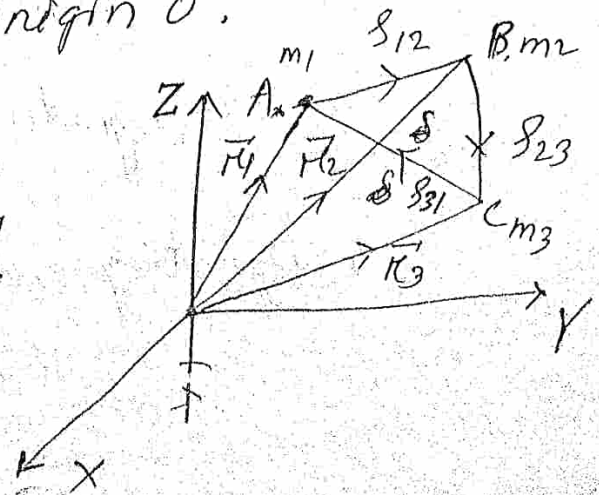 origin O.
m1 ρ12 B, m2
Z A
r⃗1 r⃗2 ρ23
ρ31
C m3
r⃗3
Y
X